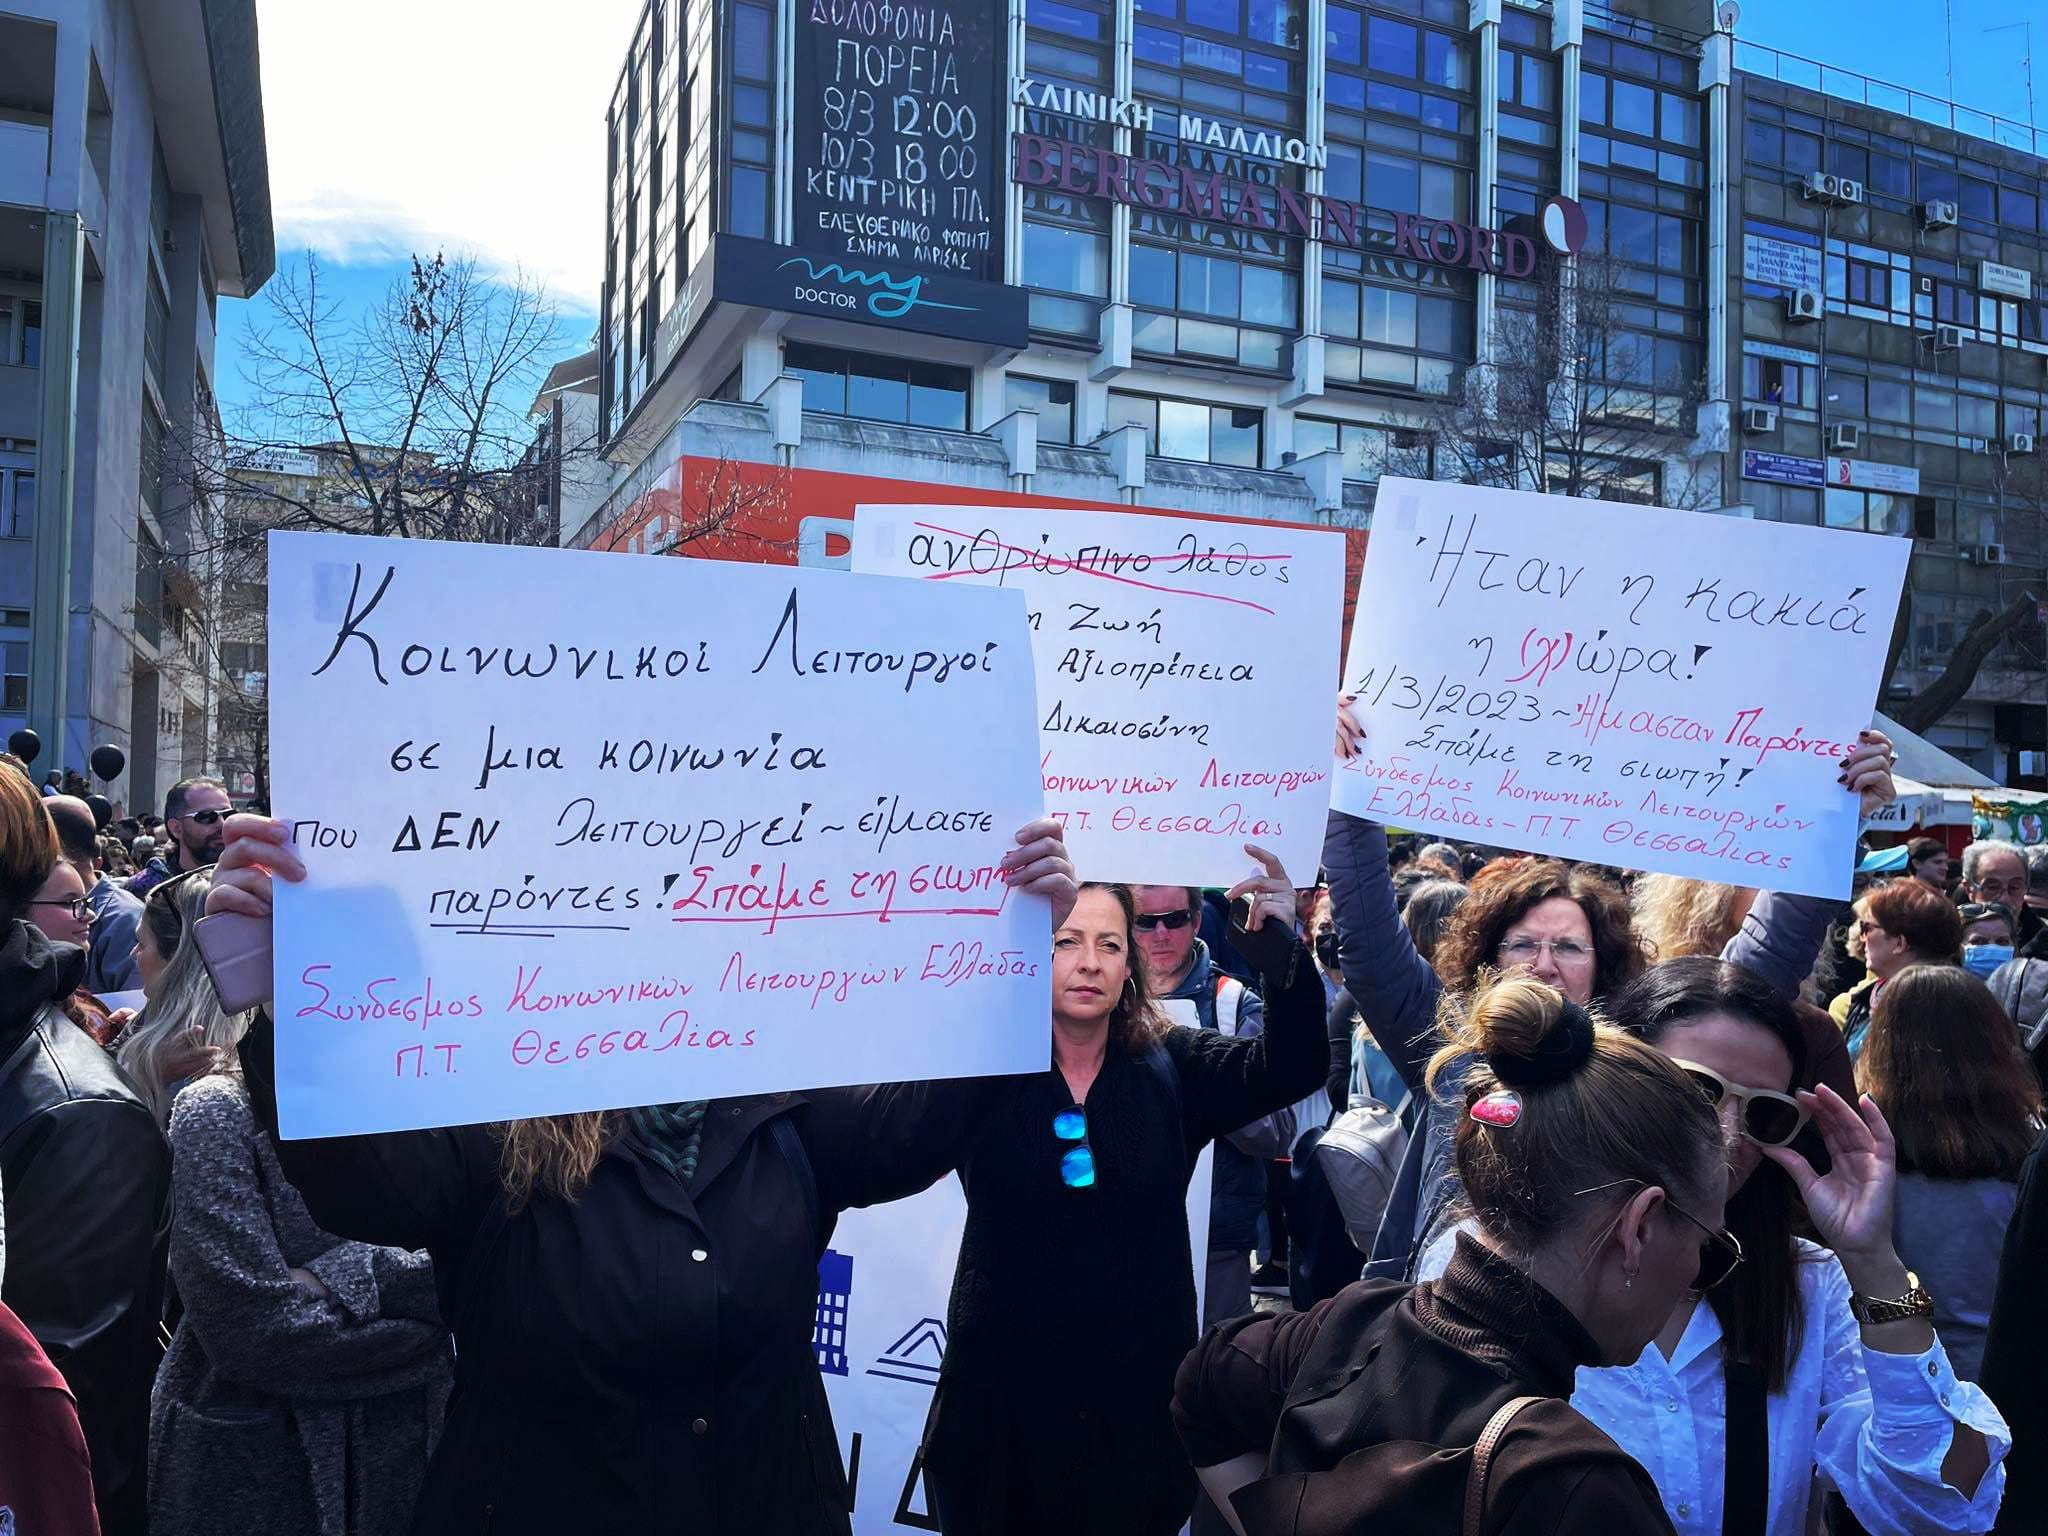 ΔΟΛΟΦΟΝΙΑ
ΠΟΡΕΙΑ
8/3 12:00
10/3 18 00
ΚΕΝΤΡΙΚΗ ΠΛ.
ΕΛΕΥΘΕΡΙΑΚΟ ΦΟΙΤΗΤΙ
ΣΧΗΜΑ ΛΑΡΙΣΑΣ
my
DOCTOR
ΚΛΙΝΙΚΗ ΜΑΛΛΙΩΝ
BERGMANN KORD
Κοινωνικοί Λειτουργοί
σε μια κοινωνία
που ΔΕΝ λειτουργεί ~ είμαστε
παρόντες! Σπάμε τη σιωπή
Σύνδεσμος Κοινωνικών Λειτουργών Ελλάδας
Π.Τ. Θεσσαλίας
ανθρώπινο λάθος
η Ζωή
Αξιοπρέπεια
Δικαιοσύνη
Κοινωνικών Λειτουργών
Π.Τ. Θεσσαλίας
Ήταν η κακιά
η (χ)ώρα!
1/3/2023 ~ Ήμασταν Παρόντες
Σπάμε τη σιωπή!
Σύνδεσμος Κοινωνικών Λειτουργών
Ελλάδας - Π.Τ. Θεσσαλίας